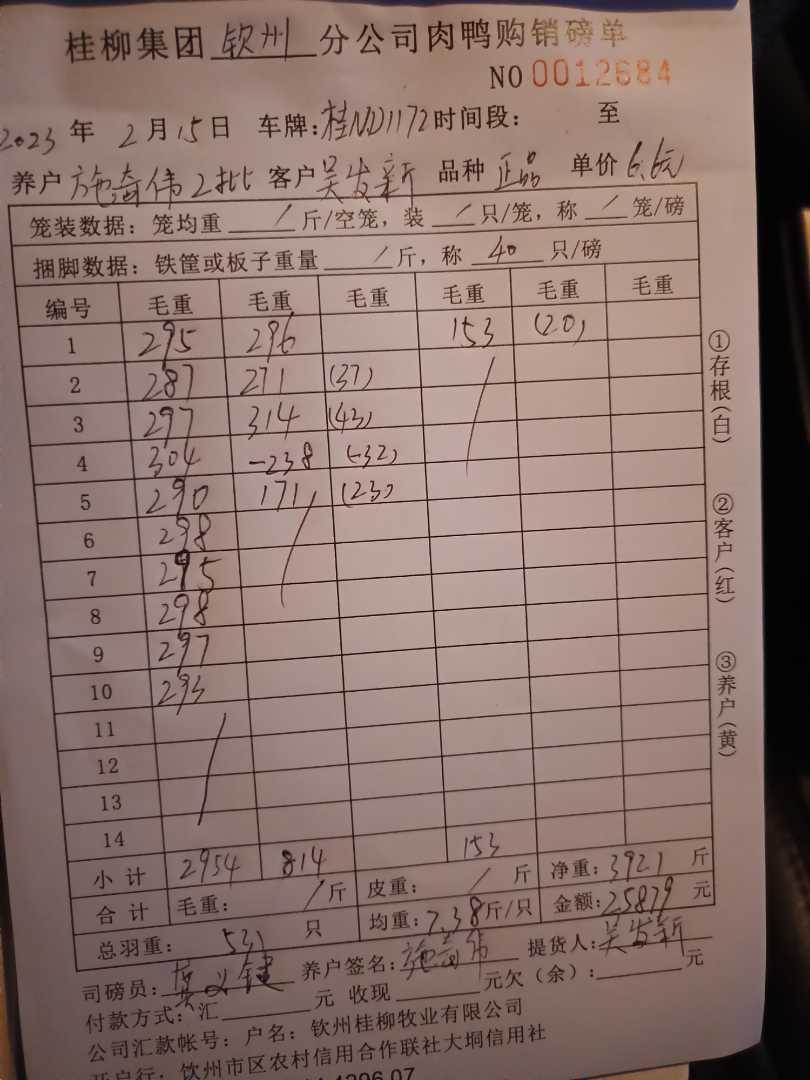 桂柳集团 钦州 分公司肉鸭购销磅单
NO 0012684
2023 年 2 月 15 日 车牌:桂ND1172 时间段: 至
养户 施奇伟2批 客户 吴发新 品种 正品 单价 6.6元
笼装数据:笼均重 / 斤/空笼,装 / 只/笼,称 / 笼/磅
捆脚数据:铁筐或板子重量 / 斤,称 40 只/磅
编号 毛重 毛重 毛重 毛重 毛重 毛重
1 295 296 153 (20)
2 287 271 (37)
3 297 314 (43)
4 304 -238 (-32)
5 290 171 (23)
6 298
7 295
8 298
9 297
10 293
11
12
13
14
小计 2954 814 153 净重:3921 斤
合计 毛重: / 斤 皮重: / 斤 金额:25879 元
总羽重: 531 只 均重:7.38 斤/只
司磅员: 养户签名:施奇伟 提货人:吴发新
付款方式:汇 元 收现 元欠(余): 元
公司汇款帐号:户名:钦州桂柳牧业有限公司
开户行:钦州市区农村信用合作联社大垌信用社
①存根(白)
②客户(红)
③养户(黄)